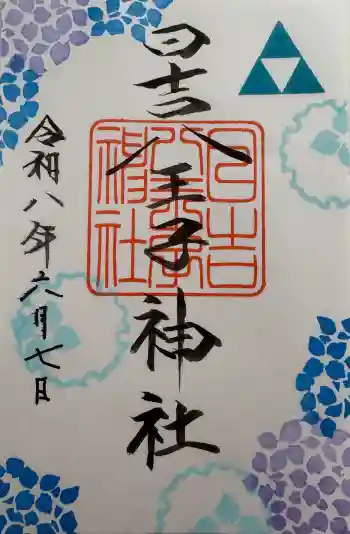 日吉八王子神社
令和八年六月七日
日吉
八王子
神社